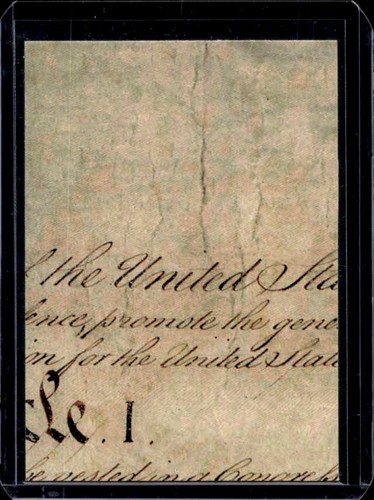 f the United Sta
ence, promote the gene
on for the United State
cle. I.
be vested in a Congress